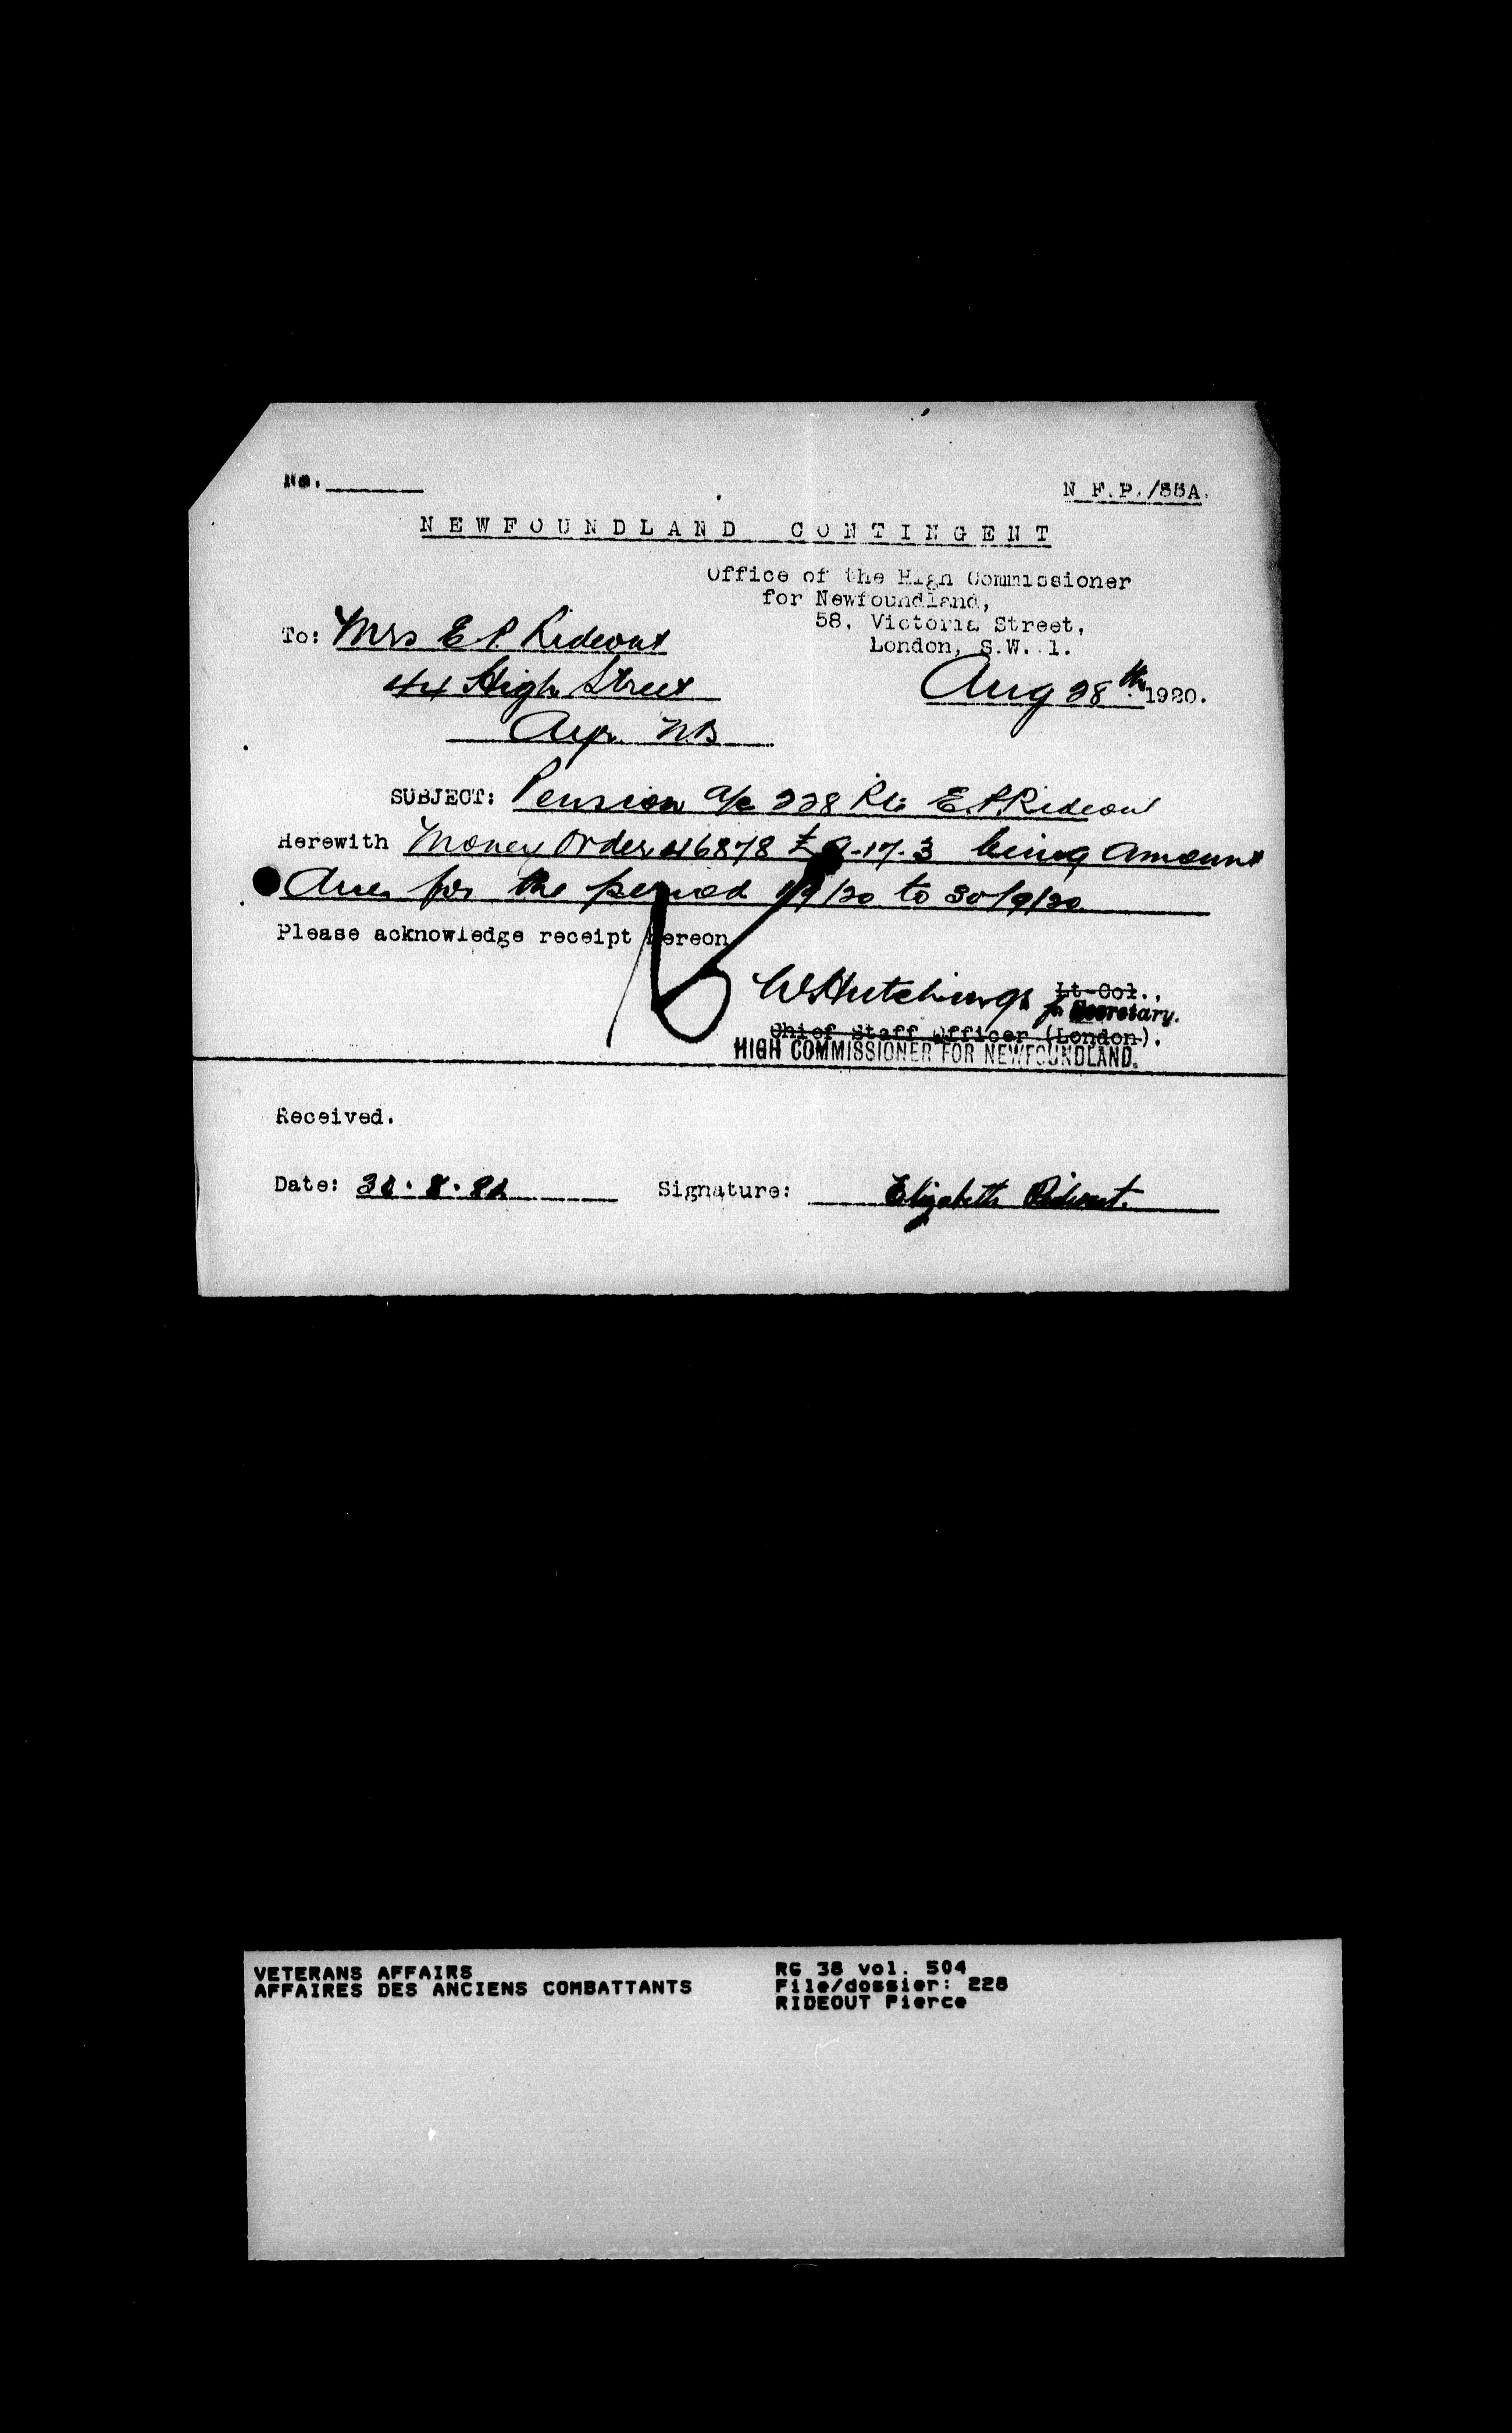 No.
N F.P./55A.
NEWFOUNDLAND CONTINGENT
Office of the High Commissioner
for Newfoundland,
58, Victoria Street,
London, S.W. 1.
To: Mrs E P. Rideout
44 High Street
Ayr. N.B
Aug 28th 1920.
SUBJECT: Pension a/c 228 Pte E.P. Rideout
Herewith Money Order 46878 £ 9-17-3 being amount
due for the period 1/9/20 to 30/9/20
Please acknowledge receipt hereon
W Hutchings Lt-Col.,
for Secretary.
Chief Staff Officer (London).
HIGH COMMISSIONER FOR NEWFOUNDLAND.
Received.
Date: Signature: Elizabeth Rideout.
VETERANS AFFAIRS
AFFAIRES DES ANCIENS COMBATTANTS
RG 38 vol. 504
File/dossier: 228
RIDEOUT Pierce